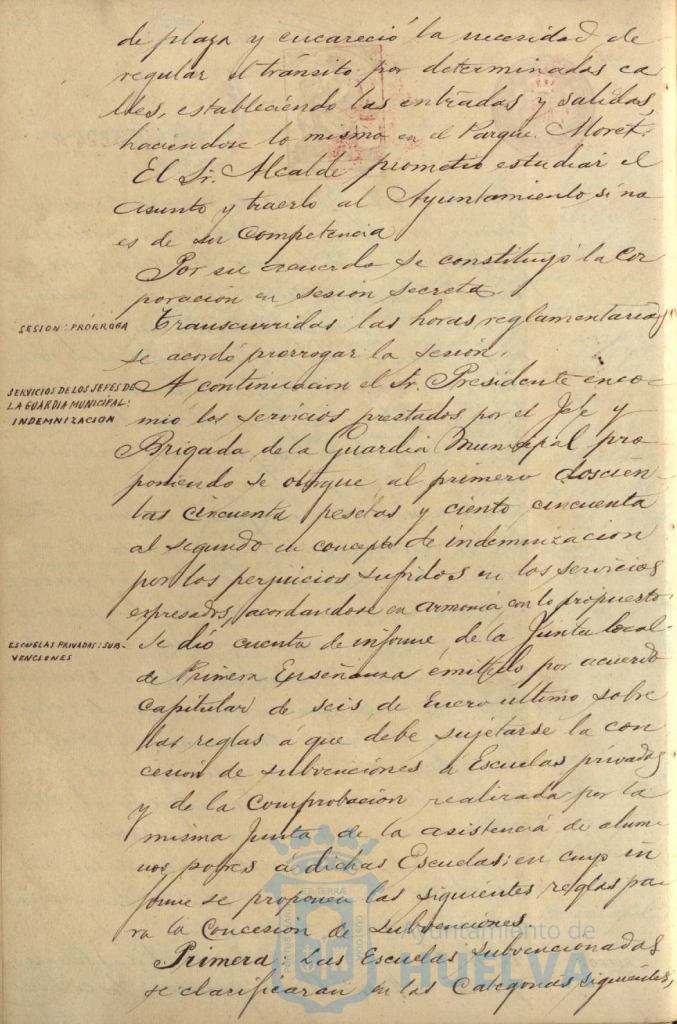 de plaza y encareció la necesidad de
regular el tránsito por determinadas ca
lles, estableciendo las entradas y salidas,
haciendose lo mismo en el Parque Moret.
El Sr. Alcalde prometio estudiar el
asunto y traerlo al Ayuntamiento si no
es de su competencia
Por su acuerdo se constituyó la Cor
poracion en sesión secreta.
SESION: PRÓRROGA
Transcurridas las horas reglamentarias
se acordó prorrogar la sesión.
SERVICIOS DE LOS JEFES DE
LA GUARDIA MUNICIPAL:
INDEMNIZACION
A continuacion el Sr. Presidente enco-
mió los servicios prestados por el Jefe y
Brigada de la Guardia Municipal pro-
poniendo se otorgue al primero doscien-
tas cincuenta pesetas y ciento cincuenta
al segundo en concepto de indemnizacion
por los perjuicios sufridos en los servicios
expresados, acordandose en armonia con lo propuesto.
ESCUELAS PRIVADAS: SUB-
VENCIONES
Se dió cuenta de informe de la Junta local
de Primera Enseñanza emitido por acuerdo
Capitular de seis de Enero ultimo sobre
las reglas á que debe sujetarse la con
cesión de subvenciónes a Escuelas privadas
y de la Comprobación realizada por la
misma Junta de la asistencia de alum-
nos pobres a dichas Escuelas; en cuyo in
forme se proponen las siguientes reglas pa
ra la Concesion de Subvenciones.
Primera: Las Escuelas subvencionadas
se clasificaran en las Categorias siguientes;
Ayuntamiento de
HUELVA